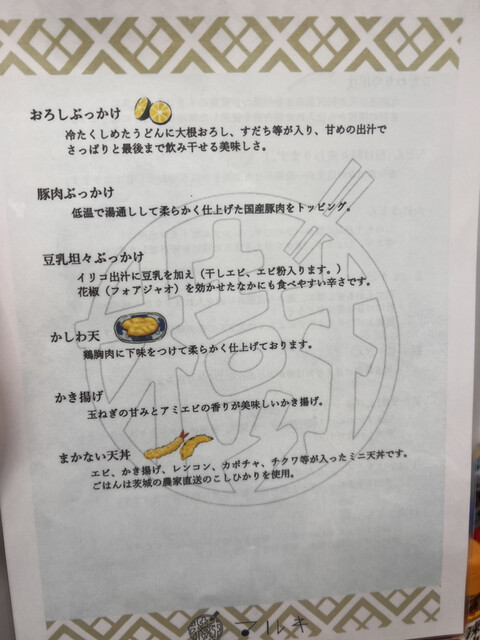 おろしぶっかけ
冷たくしめたうどんに大根おろし、すだち等が入り、甘めの出汁で
さっぱりと最後まで飲み干せる美味しさ。
豚肉ぶっかけ
低温で湯通しして柔らかく仕上げた国産豚肉をトッピング。
豆乳坦々ぶっかけ
イリコ出汁に豆乳を加え（干しエビ、エビ粉入ります。）
花椒（フォアジャオ）を効かせたなかにも食べやすい辛さです。
かしわ天
鶏胸肉に下味をつけて柔らかく仕上げております。
かき揚げ
玉ねぎの甘みとアミエビの香りが美味しいかき揚げ。
まかない天丼
エビ、かき揚げ、レンコン、カボチャ、チクワ等が入ったミニ天丼です。
ごはんは茨城の農家直送のこしひかりを使用。
マルキ